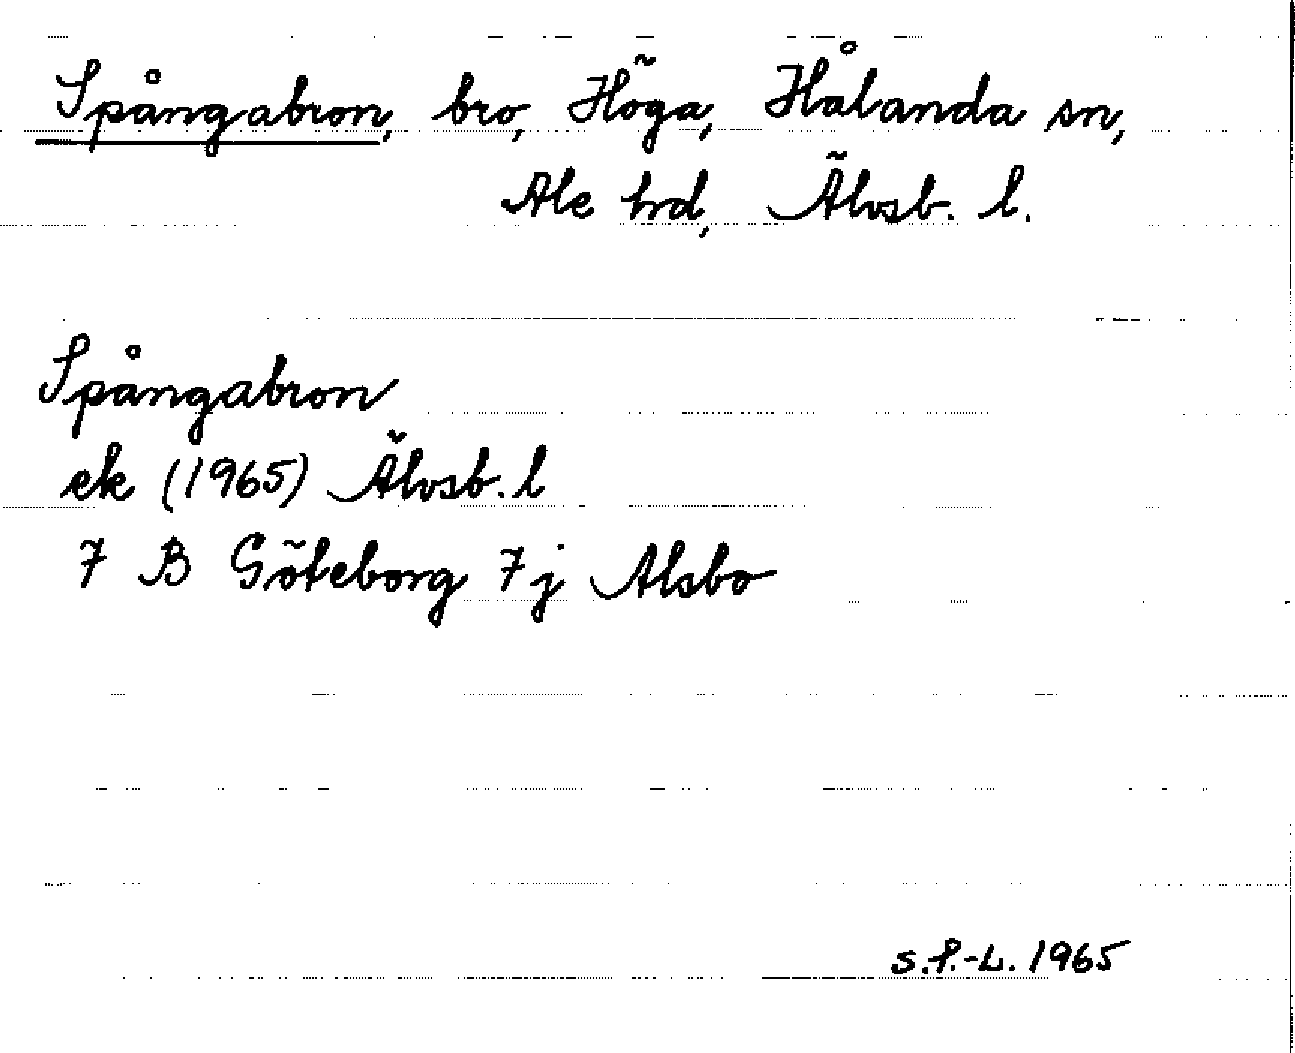 Spångabron, bro, Höga, Hålanda sn,
Ale hrd, Älvsb. l.
Spångabron
ek (1965) Älvsb. l
7 B Göteborg 7 j Alsbo
S.P.-L. 1965